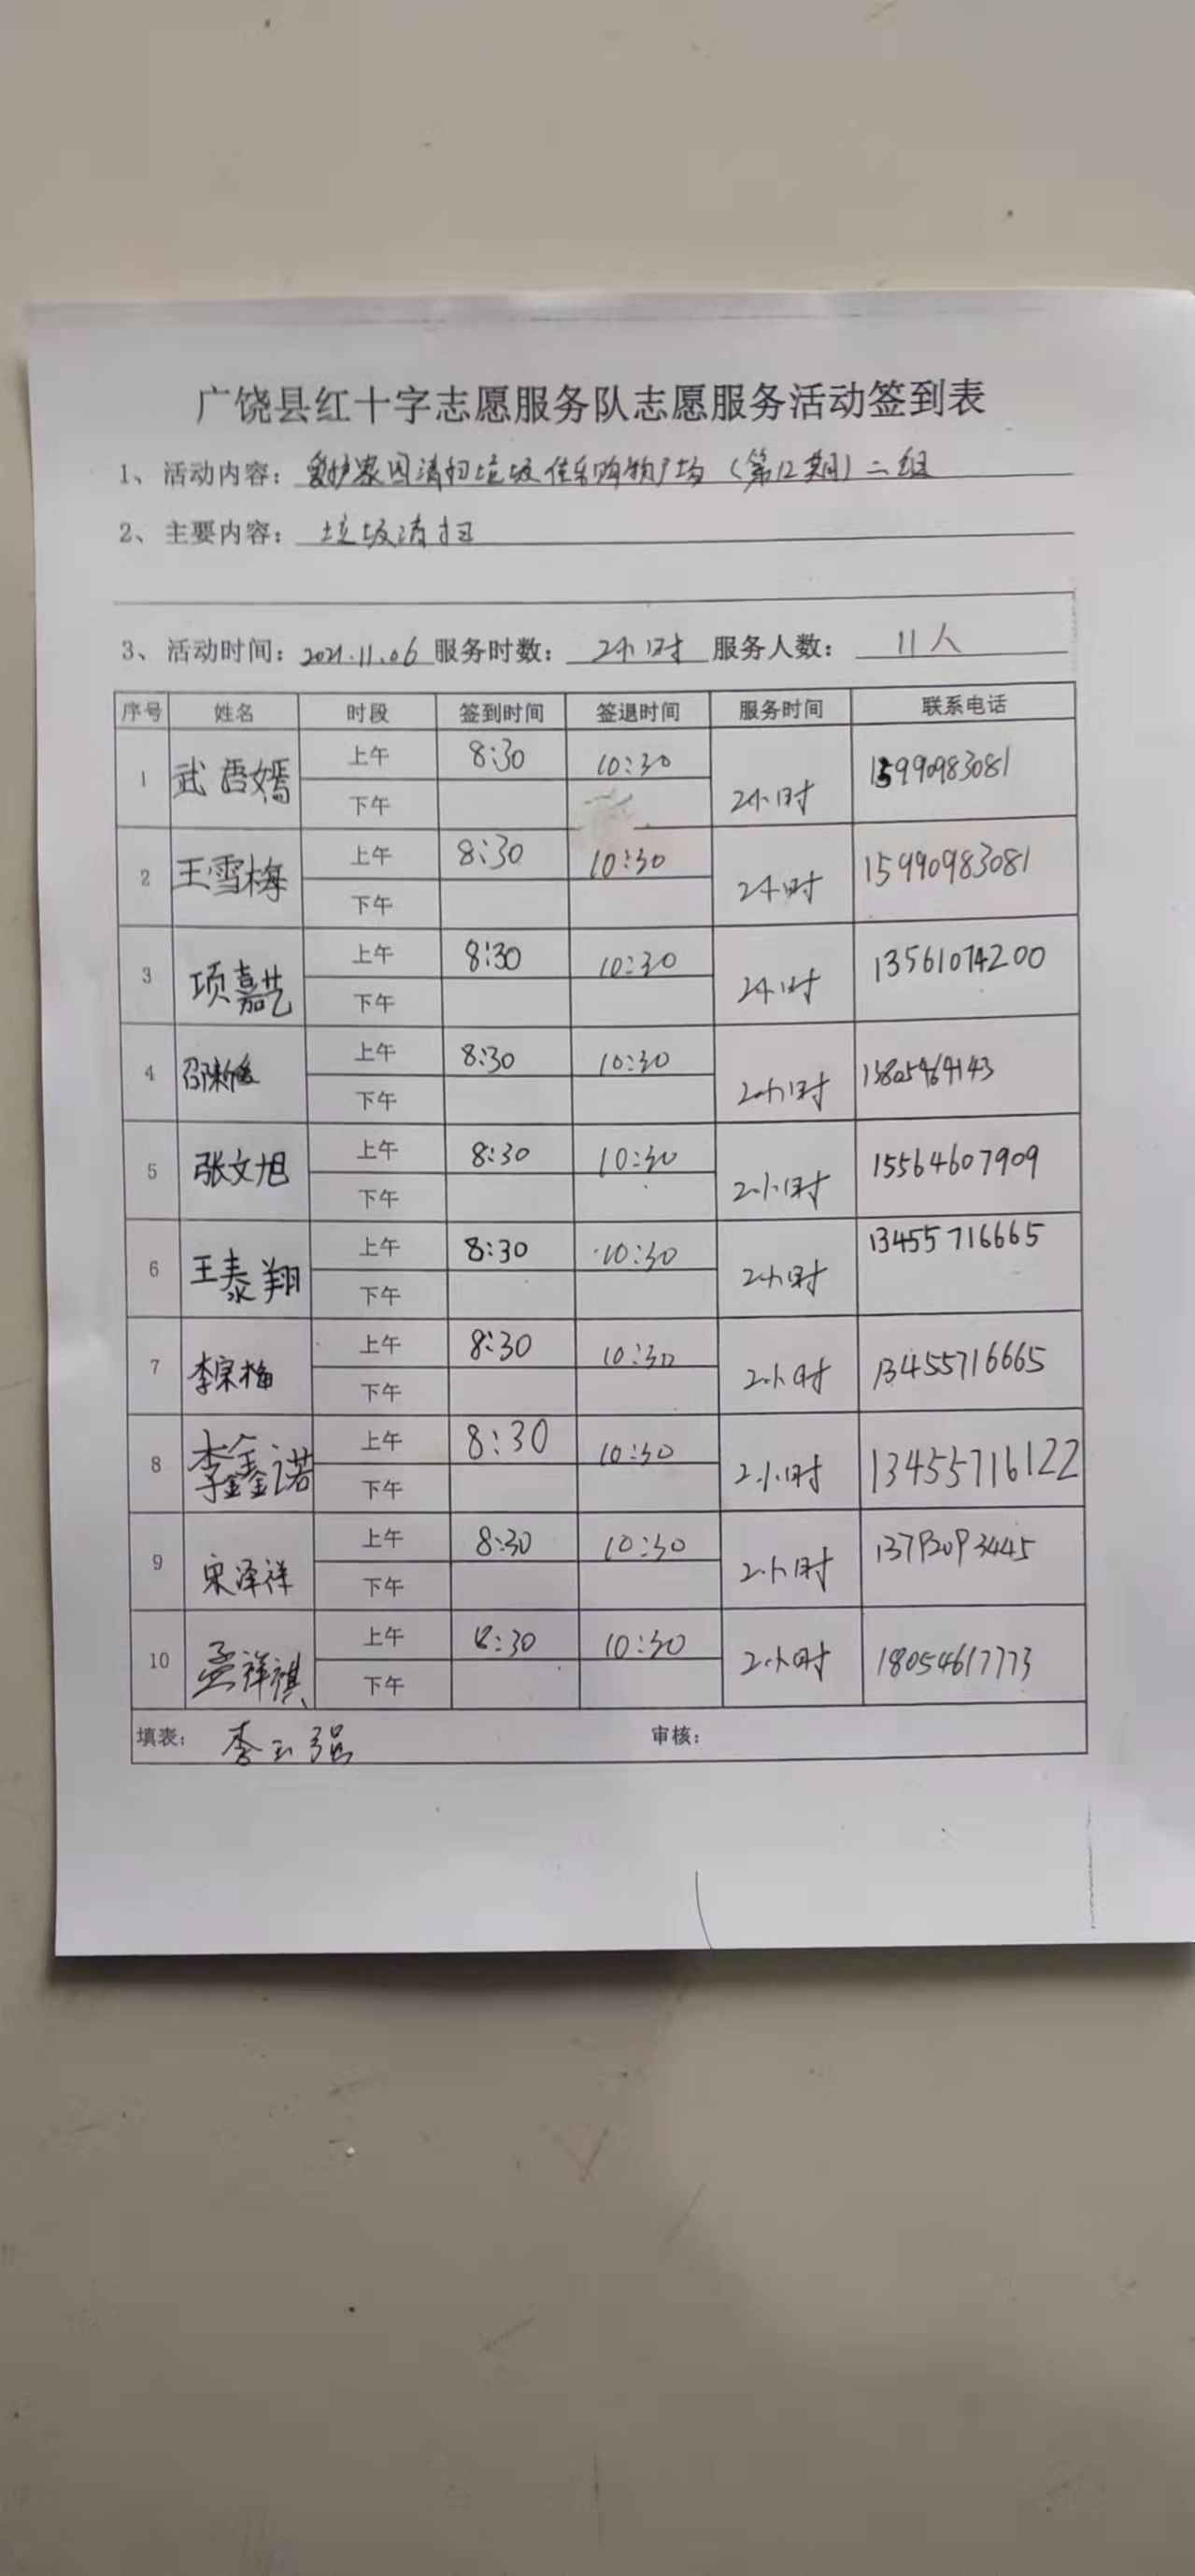 广饶县红十字志愿服务队志愿服务活动签到表
1、活动内容：爱护家园清扫垃圾佳乐购物广场（第12期）二组
2、主要内容：垃圾清扫
3、活动时间：2021.11.06 服务时数：2小时 服务人数：11人
序号 姓名 时段 签到时间 签退时间 服务时间 联系电话
1 武语嫣 上午 8:30 10:30 2小时 15990983081
下午
2 王雪梅 上午 8:30 10:30 2小时 15990983081
下午
3 项嘉艺 上午 8:30 10:30 2小时 13561074200
下午
4 上午 8:30 10:30 2小时
下午
5 张文旭 上午 8:30 10:30 2小时 15564607909
下午
6 王泰翔 上午 8:30 10:30 2小时 13455716665
下午
7 李宗梅 上午 8:30 10:30 2小时 13455716665
下午
8 李鑫诺 上午 8:30 10:30 2小时 13455716122
下午
9 宋泽祥 上午 8:30 10:30 2小时
下午
10 孟祥祺 上午 8:30 10:30 2小时 18054617773
下午
填表：李玉强 审核：